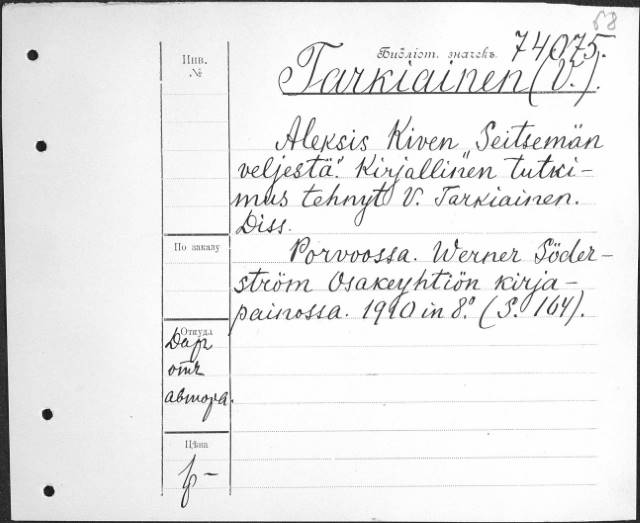 58
Инв.
№
Библіот. значекъ. 74075.
Tarkiainen (V.).
Aleksis Kiven „Seitsemän
veljestä". Kirjallinen tutki-
mus tehnyt V. Tarkiainen.
Diss.
По заказу
Porvoossa. Werner Söder-
ström Osakeyhtiön kirja-
painossa. 1910 in 8.° (S. 164).
Откуда
Даръ
отъ
автора.
Цѣна
р—